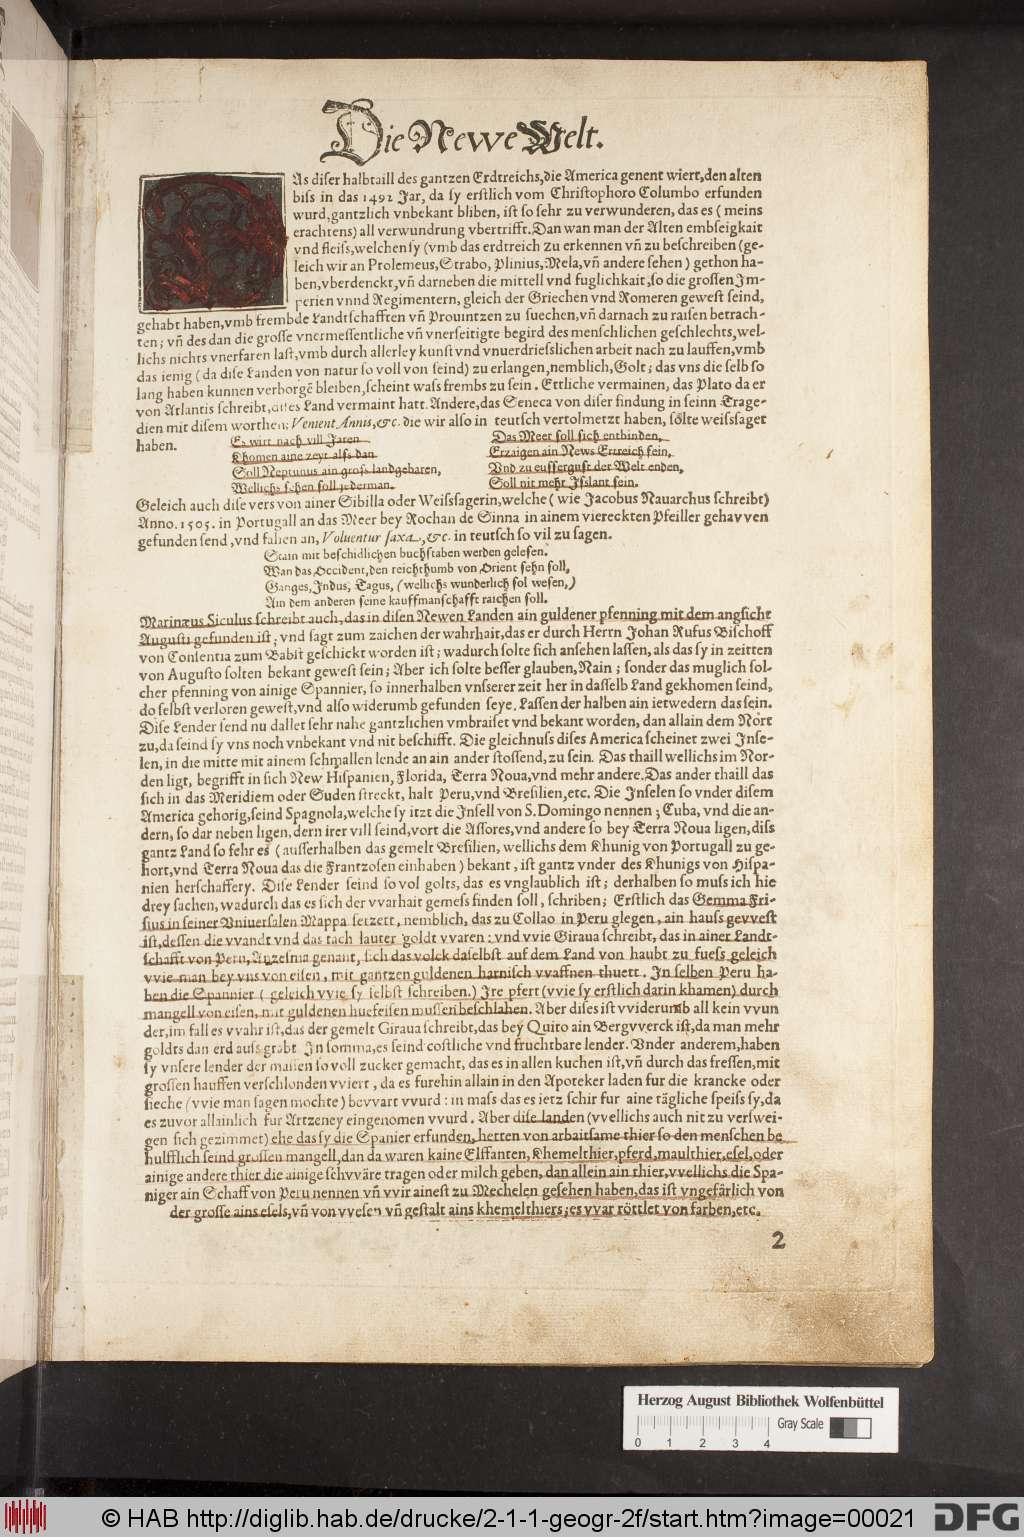 Die Newe Welt.
As diser halbtaill des gantzen Erdtreichs,die America genent wiert,den alten
biss in das 1492 Jar, da sy erstlich vom Christophoro Columbo erfunden
wurd,gantzlich vnbekant bliben, ist so sehr zu verwunderen, das es ( meins
erachtens) all verwundrung vbertrifft. Dan wan man der Alten embseigkait
vnd fleiss, welchen sy (vmb das erdtreich zu erkennen vn̄ zu beschreiben (ge-
leich wir an Ptolemeus, Strabo, Plinius, Mela, vn̄ andere sehen ) gethon ha-
ben, vberdenckt, vn̄ darneben die mittell vnd fuglichkait, so die grossen Im-
perien vnnd Regimentern, gleich der Griechen vnd Romeren gewest seind,
gehabt haben,vmb frembde Landtschafften vn̄ Prouintzen zu suechen,vn̄ darnach zu raisen betrach-
ten; vn̄ des dan die grosse vnermessentliche vn̄ vnerseitigte begird des menschlichen geschlechts, wel-
lichs nichts vnerfaren last, vmb durch allerley kunst vnd vnuerdriesslichen arbeit nach zu lauffen, vmb
das ienig ( da dise Landen von natur so voll von seind) zu erlangen, nemblich, Golt; das vns die selb so
lang haben kunnen verborgē bleiben, scheint wass frembs zu sein. Ettliche vermainen, das Plato da er
von Atlantis schreibt, Land vermaint hatt. Andere,das Seneca von diser findung in seinn Trage-
dien mit disem worthen; Venient Annis,&c. die wir also in teutsch vertolmetzt haben, sölte weissaget
haben.
Es wirt nach vill Jaren
Khomen aine zeyt alss dan
Soll Neptunus ain gross landgebaren,
Wellichs sehen soll jederman.
Das Meer soll sich entbinden,
Erzaigen ain News Ertreich fein,
Vnd zu eussergust der Welt enden,
Soll nit mehr Jsslant sein.
Geleich auch dise vers von ainer Sibilla oder Weissagerin, welche ( wie Jacobus Nauarchus schreibt)
Anno. 1505. in Portugall an das Meer bey Rochan de Sinna in ainem viereckten Pfeiller gehavven
gefunden send, vnd fahen an, Voluentur saxa, &c. in teutsch so vil zu sagen.
Stain mit beschidlichen buchstaben werden gelesen.
Wan das Occident,den reichthumb von Orient sehn soll,
Ganges, Indus, Tagus, (wellichs wunderlich sol wesen,)
Ain dem anderen seine kauffmanschafft raichen soll.
Marinæus Siculus schreibt auch, das in disen Newen Landen ain guldener pfenning mit dem angsicht
Augusti gefunden ist; vnd sagt zum zaichen der wahrhait,das er durch Herrn Johan Rufus Bischoff
von Consentia zum Babst geschickt worden ist; wadurch solte sich ansehen lassen, als das sy in zeitten
von Augusto solten bekant gewest sein; Aber ich solte besser glauben, Nain ; sonder das muglich sol-
cher pfenning von ainige Spannier, so innerhalben vnserer zeit her in dasselb Land gekhomen seind,
do selbst verloren gewest, vnd also widerumb gefunden seye. Lassen der halben ain ietwedern das sein.
Dise Lender send nu dallet sehr nahe gantzlichen vmbraiset vnd bekant worden, dan allain dem Nort
zu, da seind sy vns noch vnbekant vnd nit beschifft. Die gleichnuss dises America scheinet zwei Inse-
len, in die mitte mit ainem schmallen lende an ain ander stossend, zu sein. Das thaill wellichs im Nor-
den ligt, begrifft in sich New Hispanien, Florida, Terra Noua, vnd mehr andere. Das ander thaill das
sich in das Meridiem oder Suden streckt, halt Peru, vnd Bresilien, etc. Die Inselen so vnder disem
America gehorig, seind Spagnola, welche sy itzt die Insell von S. Domingo nennen; Cuba, vnd die an-
dern, so dar neben ligen, dern irer vill seind, vort die Assores, vnd andere so bey Terra Noua ligen, diss
gantz Land so fehr es ( ausserhalben das gemelt Bresilien, wellichs dem Khunig von Portugall zu ge-
hort, vnd Terra Noua das die Frantzosen einhaben ) bekant , ist gantz vnder des Khunigs von Hispa-
nien herschaffery. Dise Lender seind so vol golts, das es vnglaublich ist; derhalben so muss ich hie
drey sachen, wadurch das es sich der vvarhait gemess finden soll, schriben; Erstlich das Gemma Fri-
sius in seiner Vniuersalen Mappa setzett, nemblich, das zu Collao in Peru glegen, ain hauss gevvest
ist, dessen die vvandt vnd das tach lauter goldt vvaren: vnd vvie Giraua schreibt, das in ainer Landt-
schafft von Peru, Anzesma genant, sich das volck daselbst auf dem Land von haubt zu fuess geleich
vvie man bey vns von eisen, mit gantzen guldenen harnisch vvaffnen thuett. In selben Peru ha-
ben die Spannier ( geleich vvie sy selbst schreiben.) Ire pfert (vvie sy erstlich darin khamen) durch
mangell von eisen, mit guldenen huefeisen mussen beschlahen. Aber dises ist vviderumb all kein vvun
der, im fall es vvahr ist,das der gemelt Giraua schreibt,das bey Quito ain Bergvverck ist,da man mehr
goldts dan erd auss grabt. In somma, es seind costliche vnd fruchtbare lender. Vnder anderem, haben
sy vnsere lender der massen so voll zucker gemacht, das es in allen kuchen ist,vn̄ durch das fressen,mit
grossen hauffen verschlonden vviert , da es furehin allain in den Apoteker laden fur die krancke oder
sieche (vvie man sagen mochte) bevvart vvurd : in mass das es ietz schir fur aine tägliche speiss sy,da
es zuvor allainlich fur Artzeney eingenomen vvurd. Aber dise landen (vvellichs auch nit zu verswei-
gen sich gezimmet) ehe das sy die Spanier erfunden, hetten von arbaitsame thier so den menschen be
hulfflich seind grossen mangell,dan da waren kaine Elffanten, Khemelthier, pferd, maulthier, esel, oder
ainige andere thier die ainige schvväre tragen oder milch geben, dan allein ain thier, vvellichs die Spa-
niger ain Schaff von Peru nennen vn̄ vvir ainest zu Mechelen gesehen haben,das ist vngefärlich von
der grosse ains esels, vn̄ von vvesen vn̄ gestalt ains khemelthiers; es vvar röttlet von farben, etc.
2
Herzog August Bibliothek Wolfenbüttel
Gray Scale
0 1 2 3 4
© HAB http://diglib.hab.de/drucke/2-1-1-geogr-2f/start.htm?image=00021
DFG